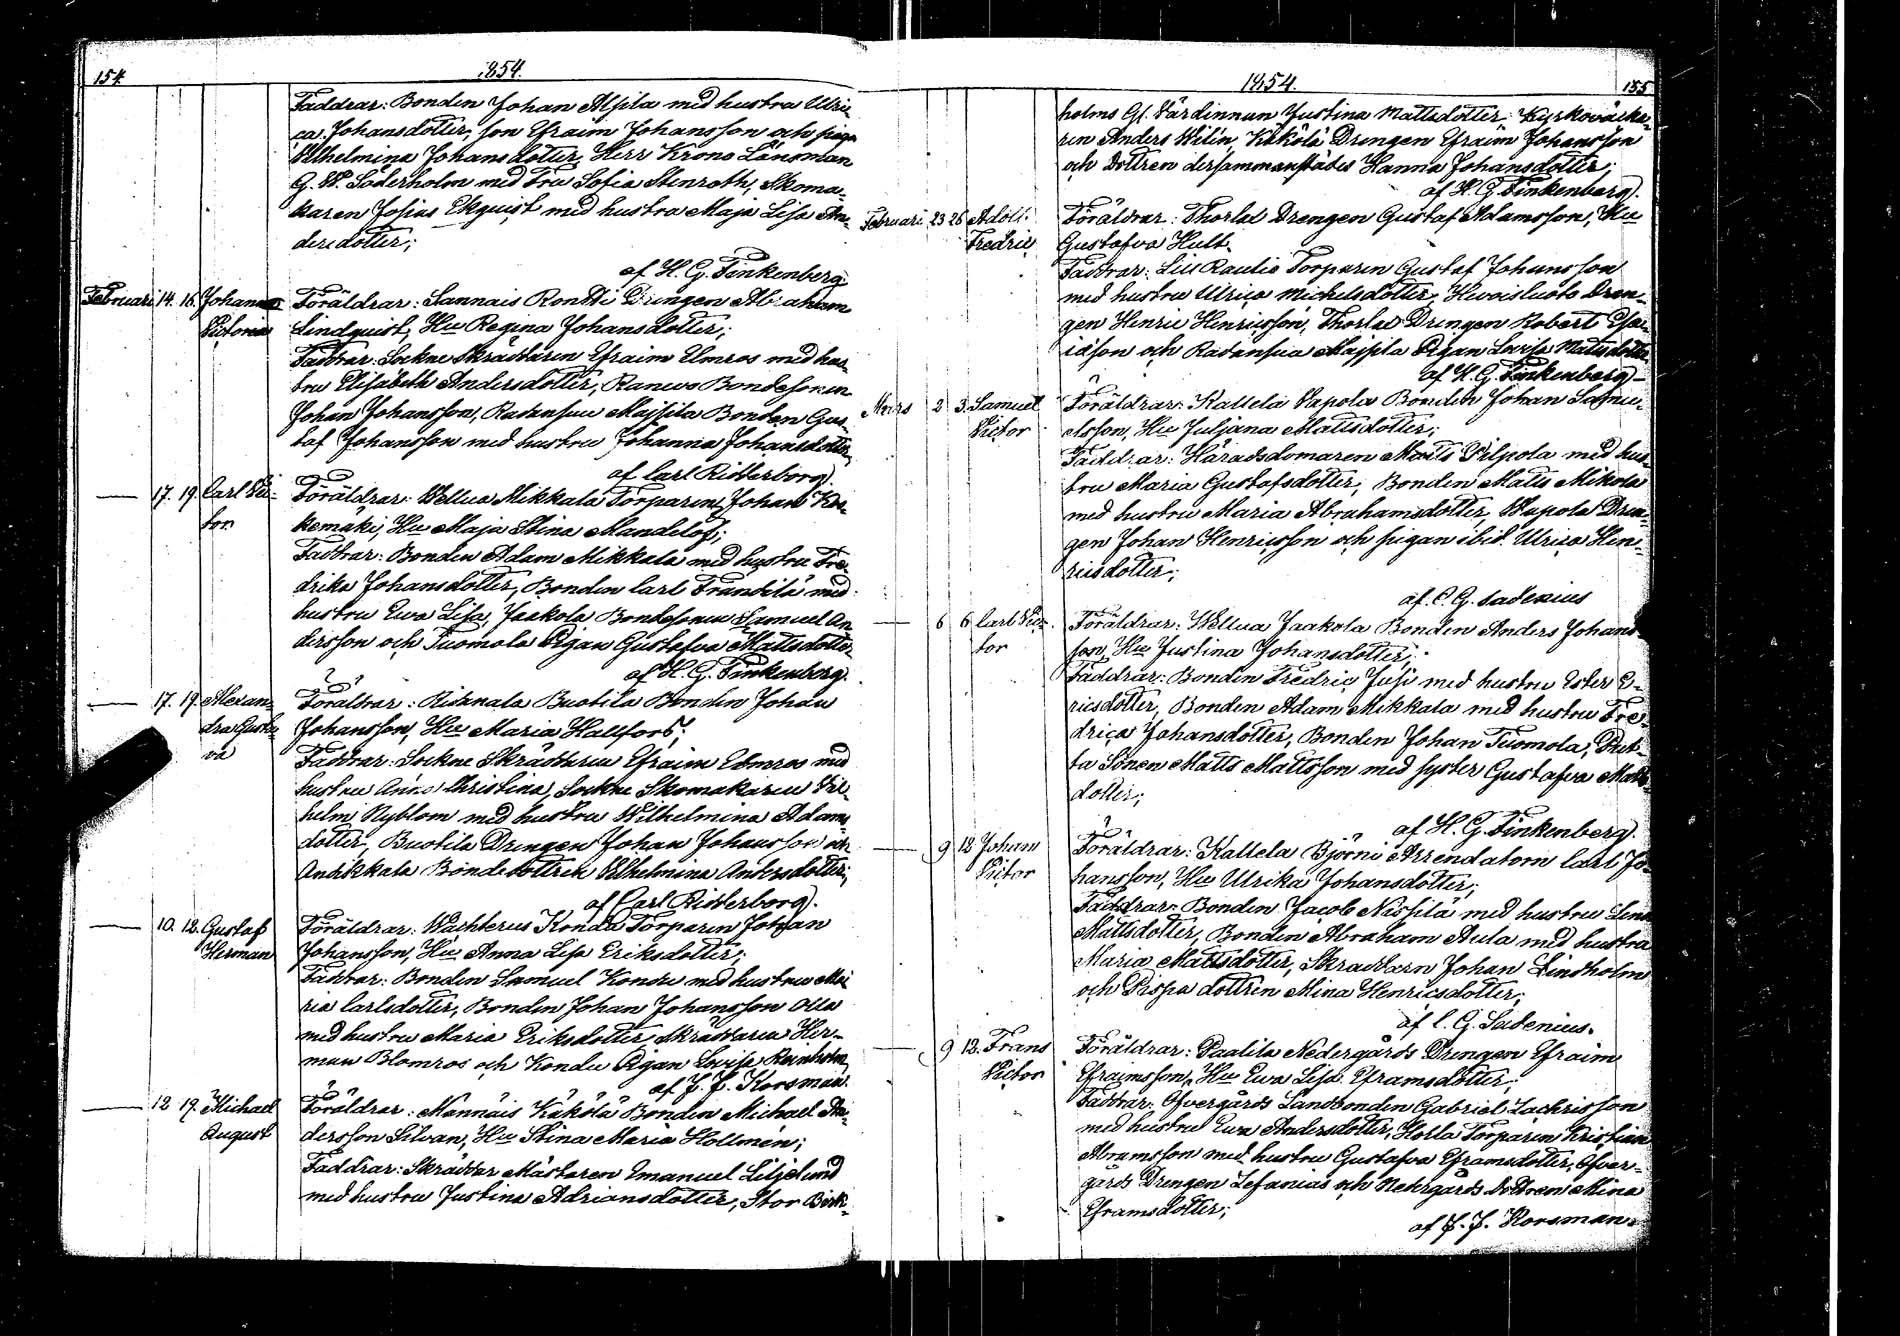 154.
1854.
Faddrar: Bonden Johan Alpila med hustru Ulri-
ca Johansdotter, son Efraim Johansson och pigan
Wilhelmina Johansdotter, Herr Krono Länsman
G. W. Söderholm med Fru Sofia Stenroth, Skoma-
karen Josias Ekquist med hustru Maja Lisa An-
dersdotter;
af H. G. Finkenberg.
Februari 14. 16. Johanna Föräldrar: Sannais Rontti Drengen Abraham
Victoria Lindquist, Hu Regina Johansdotter;
Faddrar: Sockne Skräddaren Efraim Elmros med hus-
tru Elisabeth Andersdotter, Ranevo Bondesonen
Johan Johansson, Radansuu Majpila Bonden Gus-
taf Johansson med hustru Johanna Johansdotter,
af Carl Ridderborg.
— 17. 19. Carl Vic- Föräldrar: Wellua Mikkala Torparen Johan Kos-
tor kemäki, Hu Maja Stina Mandelöf;
Faddrar: Bonden Adam Mikkala med hustru Fre-
drika Johansdotter, Bonden Carl Franttila med
hustru Ewa Lisa, Jaakola Bondesonen Samuel An-
dersson och Tuomola Pigan Gustafva Mattsdotter
af H. G. Finkenberg.
— 17. 19. Alexan- Föräldrar: Ristanala Buotila Bonden Johan
dra Gusta- Johansson, Hu Maria Hallfors;
va Faddrar: Sockne Skräddaren Efraim Elmros med
hustru Anna Christina, Sockne Skomakaren Vil-
helm Nyblom med hustru Wilhelmina Adams-
dotter, Buotila Drengen Johan Johansson och
Anikkala Bondedottren Wilhelmina Andersdotter;
af Carl Ridderborg.
— 10. 12. Gustaf Föräldrar: Wachterus Konda Torparen Johan
Herman Johansson, Hu Anna Lisa Eriksdotter;
Faddrar: Bonden Samuel Kondu med hustru Ma-
ria Carlsdotter, Bonden Johan Johansson Olla
med hustru Maria Eriksdotter, Skräddaren Her-
man Blomros och Kondu Pigan Lovisa Reinholm,
af J. J. Korsman.
— 12 19. Michael Föräldrar: Männäis Käkölä Bonden Michael An-
August dersson Silvan, Hu Stina Maria Hollmén;
Faddrar: Skräddar Mästaren Emanuel Liljelund
med hustru Justina Adriansdotter, Stor Birk-
1854.
155
holms Gl. Värdinnan Justina Mattsdotter, Kyrkovächta-
ren Anders Wilén, Käkölä Drengen Efraim Johansson
och Dottren dersammanstädes Hanna Johansdotter;
af H. G. Finkenberg.
Februari 23 26 Adolf Föräldrar: Thorlat Drengen Gustaf Adamsson, Hu
Fredric Gustafva Hult.
Faddrar: Lill Rautio Torparen Gustaf Johansson
med hustru Ulrica Michelsdotter, Hevoisluoto Dren-
gen Henric Henricsson, Thorlat Drengen Robert Esa-
iasson och Radansuu Majpila Pigan Lovisa Mattsdotter
af H. G. Finkenberg.
Mars 2 3. Samuel Föräldrar: Kallela Vapola Bonden Johan Samu-
Victor elsson, Hu Juliana Mattsdotter;
Faddrar: Häradsdomaren Matts Pilpola med hus-
tru Maria Gustafsdotter, Bonden Matts Mikola
med hustru Maria Abrahamsdotter, Wapola Dren-
gen Johan Henricsson och pigan ibid. Ulrica Hen-
ricsdotter;
af C. G. Sadenius
— 6 6 Carl Vic- Föräldrar: Wellua Jaakola Bonden Anders Johans-
tor son, Hu Justina Johansdotter;
Faddrar: Bonden Fredric Jusi med hustru Ester E-
ricsdotter, Bonden Adam Mikkala med hustru Fre-
drica Johansdotter, Bonden Johan Tuomola, Put-
ta Sonen Matts Mattsson med syster Gustafva Matts-
dotter;
af H. G. Finkenberg.
— 9 12 Johan Föräldrar: Kallela Björni Arrendatorn Carl Jo-
Victor hansson, Hu Ulrika Johansdotter;
Faddrar: Bonden Jacob Nispilä med hustru Lena
Mattsdotter, Bonden Abraham Aula med hustru
Maria Mattsdotter, Skräddarn Johan Lindholm
och Pispa dottren Mina Henricsdotter;
af C. G. Sadenius.
— 9 12. Frans Föräldrar: Paalila Nedergårds Drengen Efraim
Victor Efraimsson, Hu Ewa Lisa Eframsdotter;
Faddrar: Öfvergårds Landbonden Gabriel Zachrisson
med hustru Ewa Andersdotter, Holla Torparen Kristian
Abramsson med hustru Gustafva Eframsdotter, Öfver-
gårds Drengen Zefanias och Nedrgårds Dottren Mina
Eframsdotter;
af J. J. Korsman.